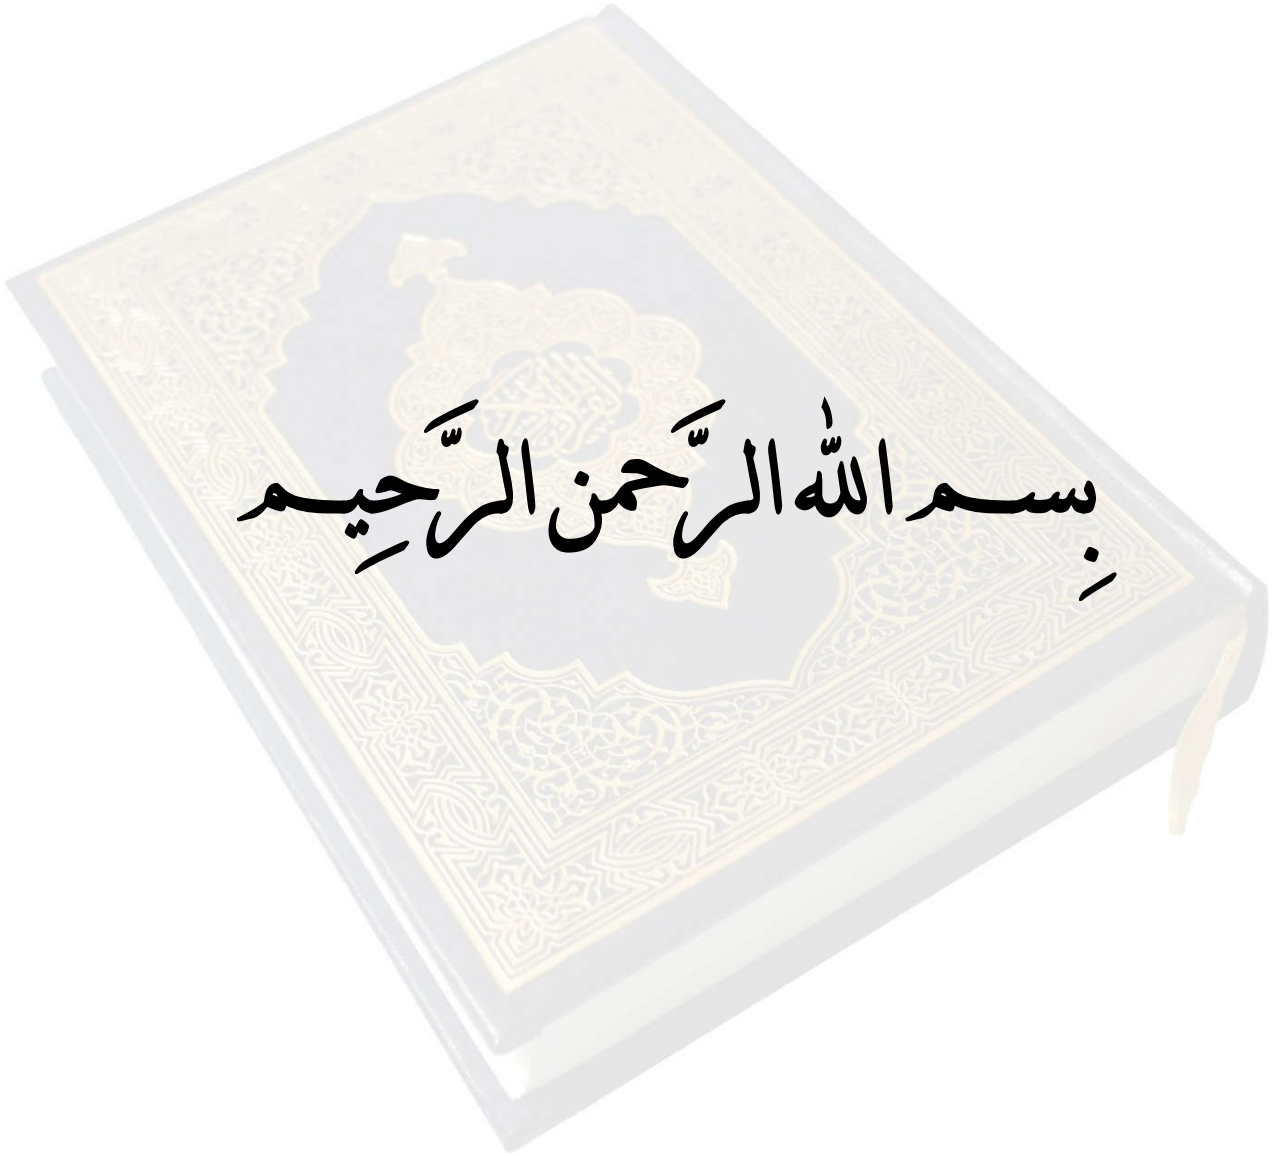 بِسم الله الرَّحمن الرَّحِيم